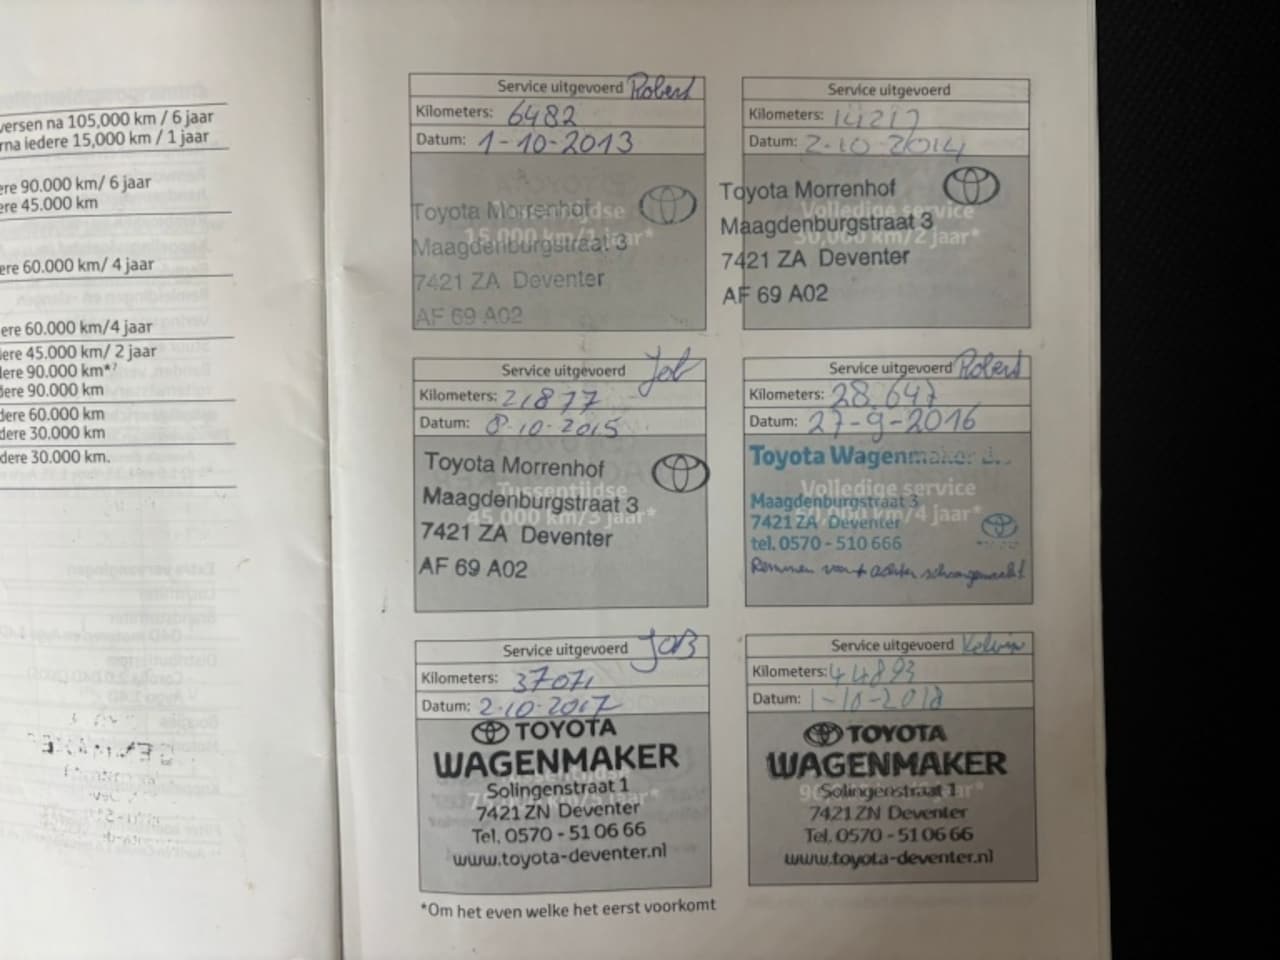 versen na 105,000 km / 6 jaar
rna iedere 15,000 km / 1 jaar
ere 90.000 km/ 6 jaar
ere 45.000 km
ere 60.000 km/ 4 jaar
ere 60.000 km/4 jaar
dere 45.000 km/ 2 jaar
dere 90.000 km*⁷
dere 90.000 km
dere 60.000 km
dere 30.000 km
dere 30.000 km.
Service uitgevoerd Robert
Kilometers: 6482
Datum: 1-10-2013
Toyota Morrenhof
Tussentijdse
15,000 km/1 jaar*
Maagdenburgstraat 3
7421 ZA Deventer
AF 69 A02
Service uitgevoerd
Kilometers: 14217
Datum: 2-10-2014
Toyota Morrenhof
Volledige service
Maagdenburgstraat 3
30,000 km/2 jaar*
7421 ZA Deventer
AF 69 A02
Service uitgevoerd Job
Kilometers: 21877
Datum: 8-10-2015
Toyota Morrenhof
Tussentijdse
Maagdenburgstraat 3
45,000 km/3 jaar*
7421 ZA Deventer
AF 69 A02
Service uitgevoerd Robert
Kilometers: 28.647
Datum: 27-9-2016
Toyota Wagenmaker
Volledige service
Maagdenburgstraat 3
60,000 km/4 jaar*
7421 ZA Deventer
tel. 0570 - 510 666
Remmen voor + achter schoongemaakt
Service uitgevoerd JOB
Kilometers: 37071
Datum: 2-10-2017
TOYOTA
WAGENMAKER
Solingenstraat 1
7421 ZN Deventer
Tel. 0570 - 51 06 66
www.toyota-deventer.nl
Service uitgevoerd Kelvin
Kilometers: 44893
Datum: 1-10-2018
TOYOTA
WAGENMAKER
Solingenstraat 1
7421 ZN Deventer
Tel. 0570 - 51 06 66
www.toyota-deventer.nl
*Om het even welke het eerst voorkomt